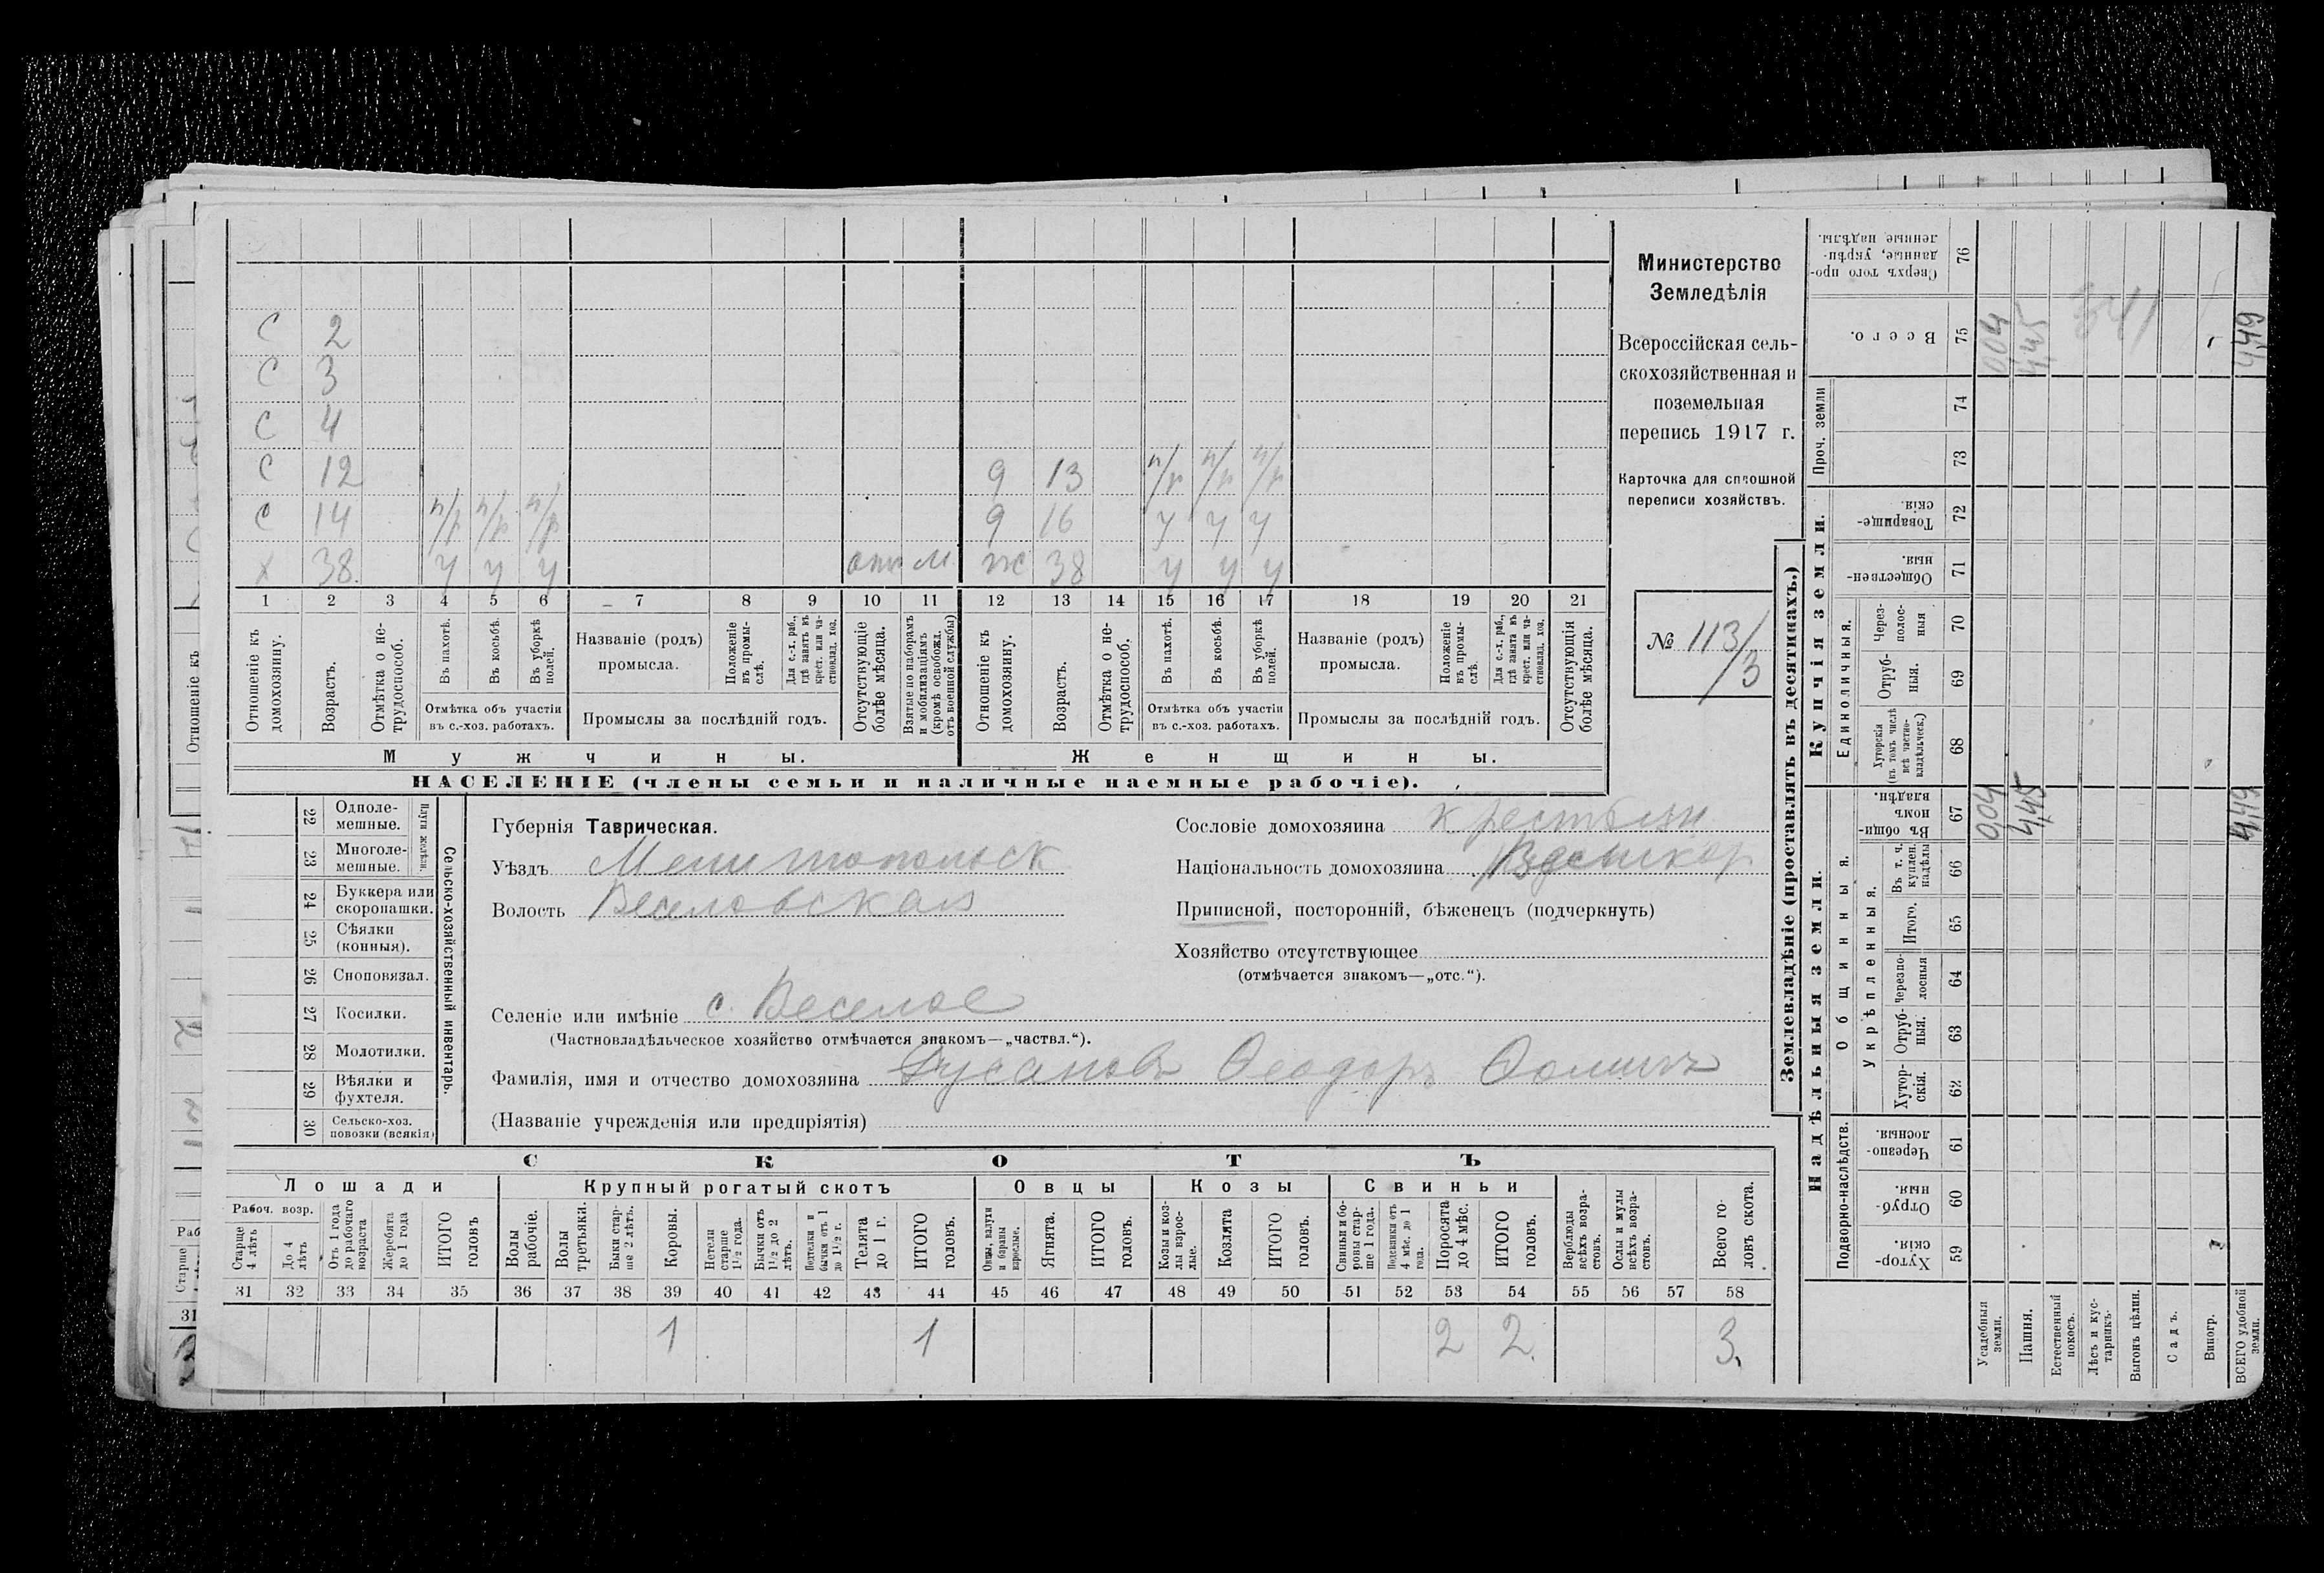 С 2
С 3
С 4
С 12 9 13 п/р п/р п/р
С 14 п/р п/р п/р 9 16 у у у
х 38 у у у отс м. ж 38 у у у
1 2 3 4 5 6 7 8 9 10 11 12 13 14 15 16 17 18 19 20 21
Отношеніе къ домохозяину.
Возрастъ.
Отмѣтка о не-
трудоспособ.
Въ пахотѣ.
Въ косьбѣ.
Въ уборкѣ
полей.
Отмѣтка объ участіи
въ с.-хоз. работахъ.
Названіе (родъ)
промысла.
Положеніе
въ промы-
слѣ.
Для с.-х. раб.,
гдѣ занятъ въ
крест. или ча-
стновлад. хоз.
Промыслы за послѣдній годъ.
Отсутствующіе
болѣе мѣсяца.
Взятые по наборамъ
и мобилизаціямъ
(кромѣ освобожд.
отъ военной службы)
Отношеніе къ
домохозяину.
Возрастъ.
Отмѣтка о не-
трудоспособ.
Въ пахотѣ.
Въ косьбѣ.
Въ уборкѣ
полей.
Отмѣтка объ участіи
въ с.-хоз. работахъ.
Названіе (родъ)
промысла.
Положеніе
въ промы-
слѣ.
Для с.-х. раб.,
гдѣ занята въ
крест. или ча-
стновлад. хоз.
Промыслы за послѣдній годъ.
Отсутствующія
болѣе мѣсяца.
Мужчины.
Женщины.
НАСЕЛЕНІЕ (члены семьи и наличные наемные рабочіе).
Министерство
Земледѣлія
Всероссійская сель-
скохозяйственная и
поземельная
перепись 1917 г.
Карточка для сплошной
переписи хозяйствъ.
№ 113/3
22 Одноле-
мешные.
23 Многоле-
мешные.
Плуги желѣзн.
24 Буккера или
скоропашки.
25 Сѣялки
(конныя).
26 Сноповязал.
27 Косилки.
28 Молотилки.
29 Вѣялки и
фухтеля.
30 Сельско-хоз.
повозки (всякія)
Сельско-хозяйственный инвентарь.
Губернія Таврическая.
Уѣздъ Мелитопольск
Волость Веселовская
Селеніе или имѣніе с. Веселое
(Частновладѣльческое хозяйство отмѣчается знакомъ—„частвл.“).
Фамилія, имя и отчество домохозяина Русановъ Ѳеодоръ Ѳомичъ
(Названіе учрежденія или предпріятія)
Сословіе домохозяина крестьян
Національность домохозяина
Приписной, посторонній, бѣженецъ (подчеркнуть)
Хозяйство отсутствующее
(отмѣчается знакомъ—„отс.“).
СКОТЪ
Лошади
Рабоч. возр.
Старше
4 лѣтъ
До 4
лѣтъ
Отъ 1 года
до рабочаго
возраста
Жеребята
до 1 года
ИТОГО
головъ
Крупный рогатый скотъ
Волы
рабочіе.
Волы
третьяки.
Быки стар-
ше 2 лѣтъ.
Коровы.
Нетели
старше
1½ года.
Бычки отъ
1½ до 2
лѣтъ.
Нетелки и
бычки отъ 1
до 1½ г.
Телята
до 1 г.
ИТОГО
головъ.
Овцы
Овцы, валухи
и бараны
взрослые.
Ягнята.
ИТОГО
головъ.
Козы
Козы и коз-
лы взрос-
лые.
Козлята
ИТОГО
головъ.
Свиньи
Свиньи и бо-
ровы стар-
ше 1 года.
Подсвинки отъ
4 мѣс. до 1
года.
Поросята
до 4 мѣс.
ИТОГО
головъ.
Верблюды
всѣхъ возра-
стовъ.
Ослы и мулы
всѣхъ возра-
стовъ.
Всего го-
ловъ скота.
31 32 33 34 35 36 37 38 39 40 41 42 43 44 45 46 47 48 49 50 51 52 53 54 55 56 57 58
1 1 2 2. 3.
Землевладѣніе (проставлять въ десятинахъ.)
Купчія земли.
Проч. земли
Сверхъ того про-
данные, укрѣп-
ленные надѣлы.
76
Всего.
75 0,04 4,45 341 4,49
74
73
Товарище-
скія
72
Обществен-
ныя.
71
Единоличныя.
Через-
полос-
ныя
70
Отруб-
ныя.
69
Хуторскія
(въ томъ числѣ
всѣ частно-
владѣльческ.)
68
Надѣльныя земли.
Общинныя.
Въ общин-
номъ
владѣн.
67 0,04 4,45 4,49
Укрѣпленныя.
Въ т. ч.
куплен.
надѣлы
66
Итого.
65
Черезпо-
лосныя
64
Отруб-
ныя.
63
Хутор-
скія.
62
Подворно-наслѣдств.
Черезпо-
лосныя.
61
Отруб-
ныя.
60
Хутор-
скія.
59
Усадебныя
земли.
Пашня.
Естественный
покосъ.
Лѣсъ и кус-
тарникъ.
Выгонъ цѣлин.
Садъ.
Виногр.
ВСЕГО удобной
земли.
Отношеніе къ
Раб
Старше
31